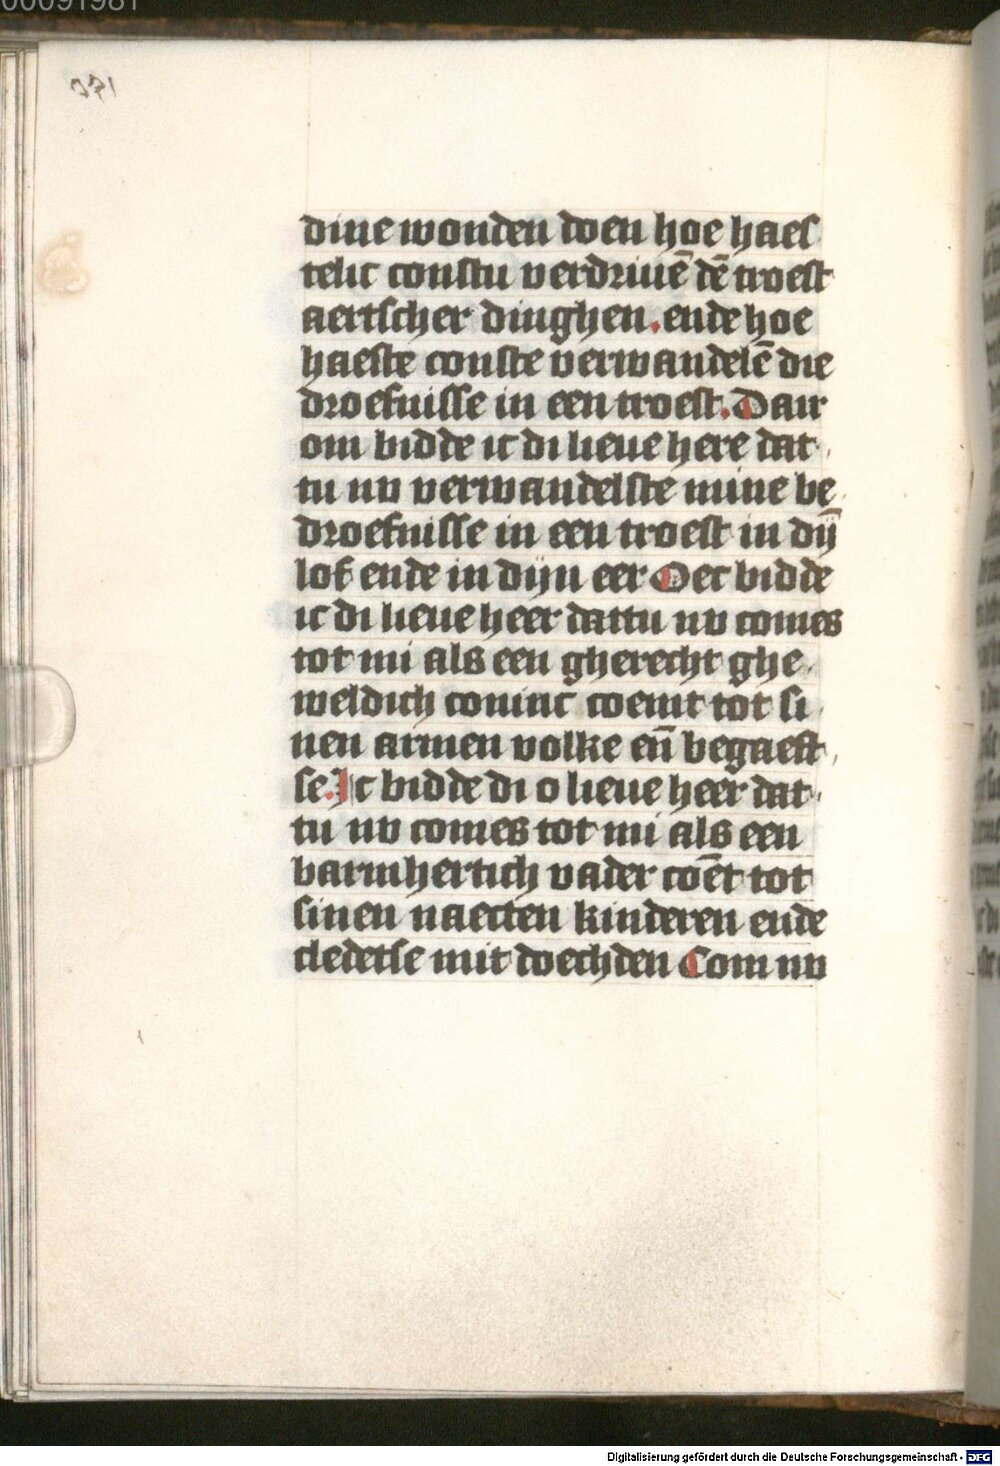 00091981
371
dine wonden doen hoe haes
telic constu verdriuē dē troest
aertscher dinghen. ende hoe
haeste conste verwandelē die
droefnisse in een troest. Dair
om bidde ic di lieue here dat
tu nv verwandelste mine be
droefnisse in een troest in dij̄
lof ende in dijn eer Oec bidde
ic di lieue heer dattu nv comes
tot mi als een gherecht ghe
weldich coninc coemt tot si
nen armen volke eñ begaeft
se. Ic bidde di o lieue heer dat
tu nv comes tot mi als een
barmhertich vader coēt tot
sinen naecten kinderen ende
cledetse mit doechden Com nv
Digitalisierung gefördert durch die Deutsche Forschungsgemeinschaft - DFG